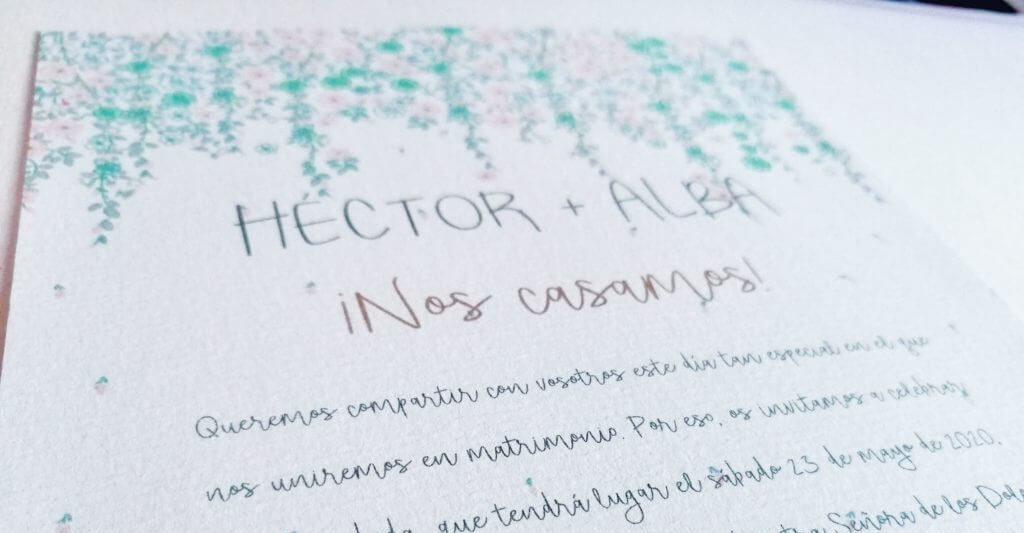 HÉCTOR + ALBA
¡Nos casamos!
Queremos compartir con vosotros este día tan especial en el que
nos uniremos en matrimonio. Por eso, os invitamos a celebrar
que tendrá lugar el sábado 23 de mayo de 2020,
Señora de los